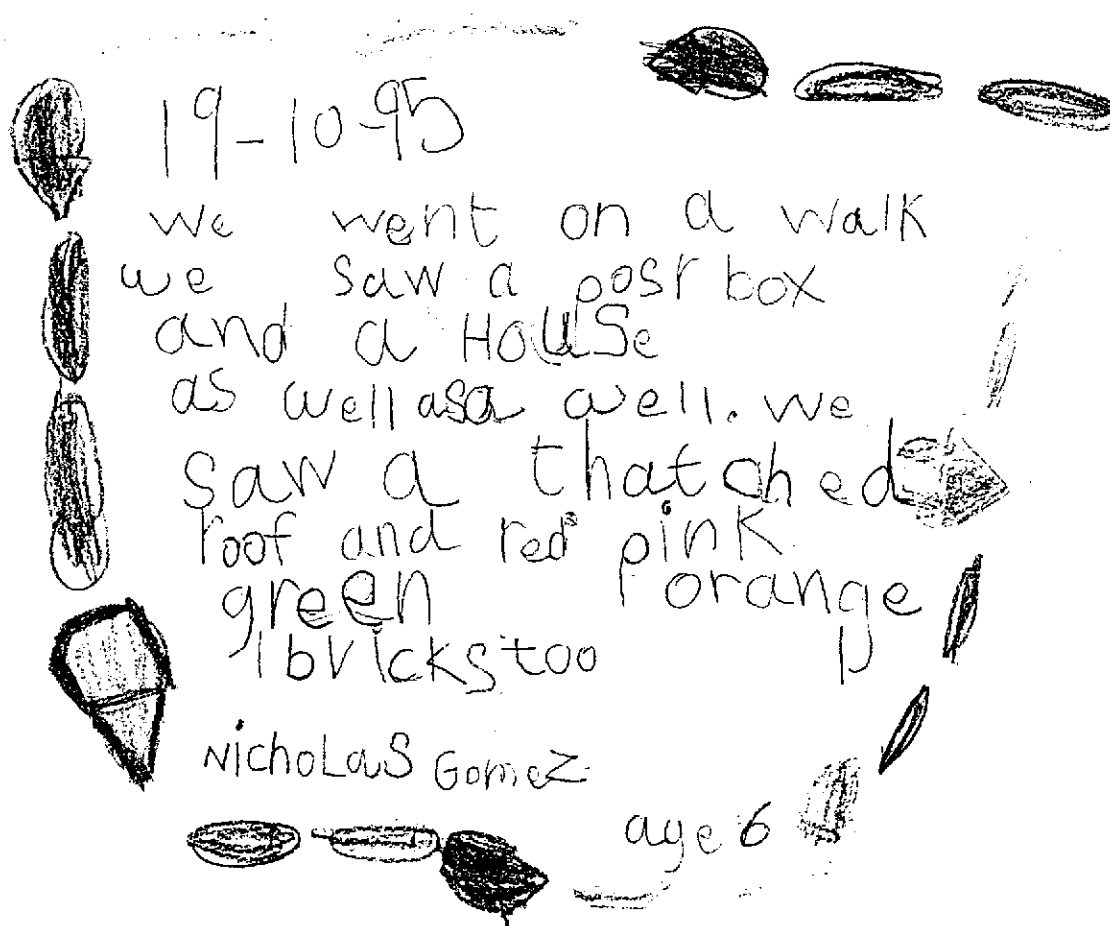 19-10-95
We went on a walk
we saw a post box
and a House
as well as a well. we
saw a thatched
roof and red pink
green orange
bricks too
NichoLaS Gomez
age 6